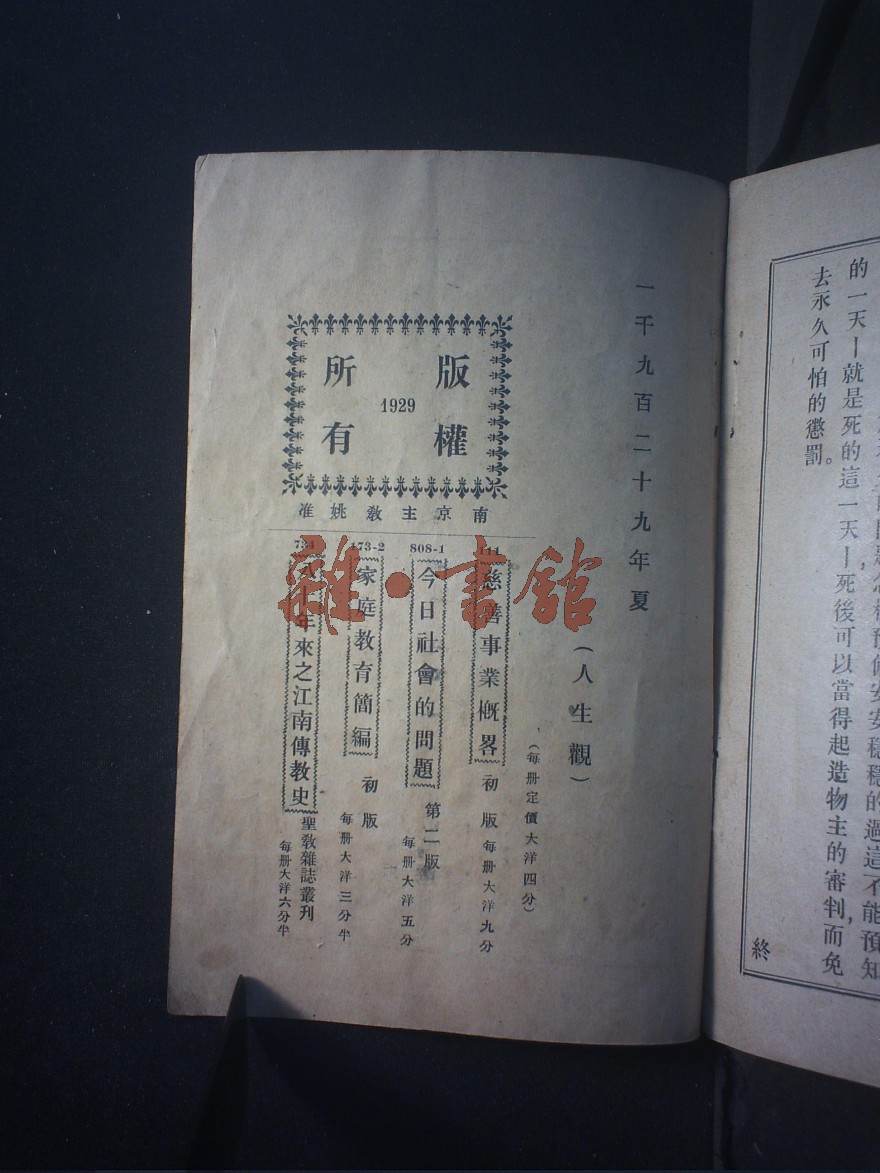 的一天—就是死的這一天—死後可以當得起造物主的審判,而免
去永久可怕的懲罰。
終
一千九百二十九年夏
(人生觀)
(每册定價大洋四分)
版權
1929
所有
南京主教姚准
慈善事業概畧 初版 每册大洋九分
808-1
今日社會的問題 第二版 每册大洋五分
173-2
家庭教育簡編 初版 每册大洋三分半
十年來之江南傳教史 聖教雜誌叢刊 每册大洋六分半
雜·書館